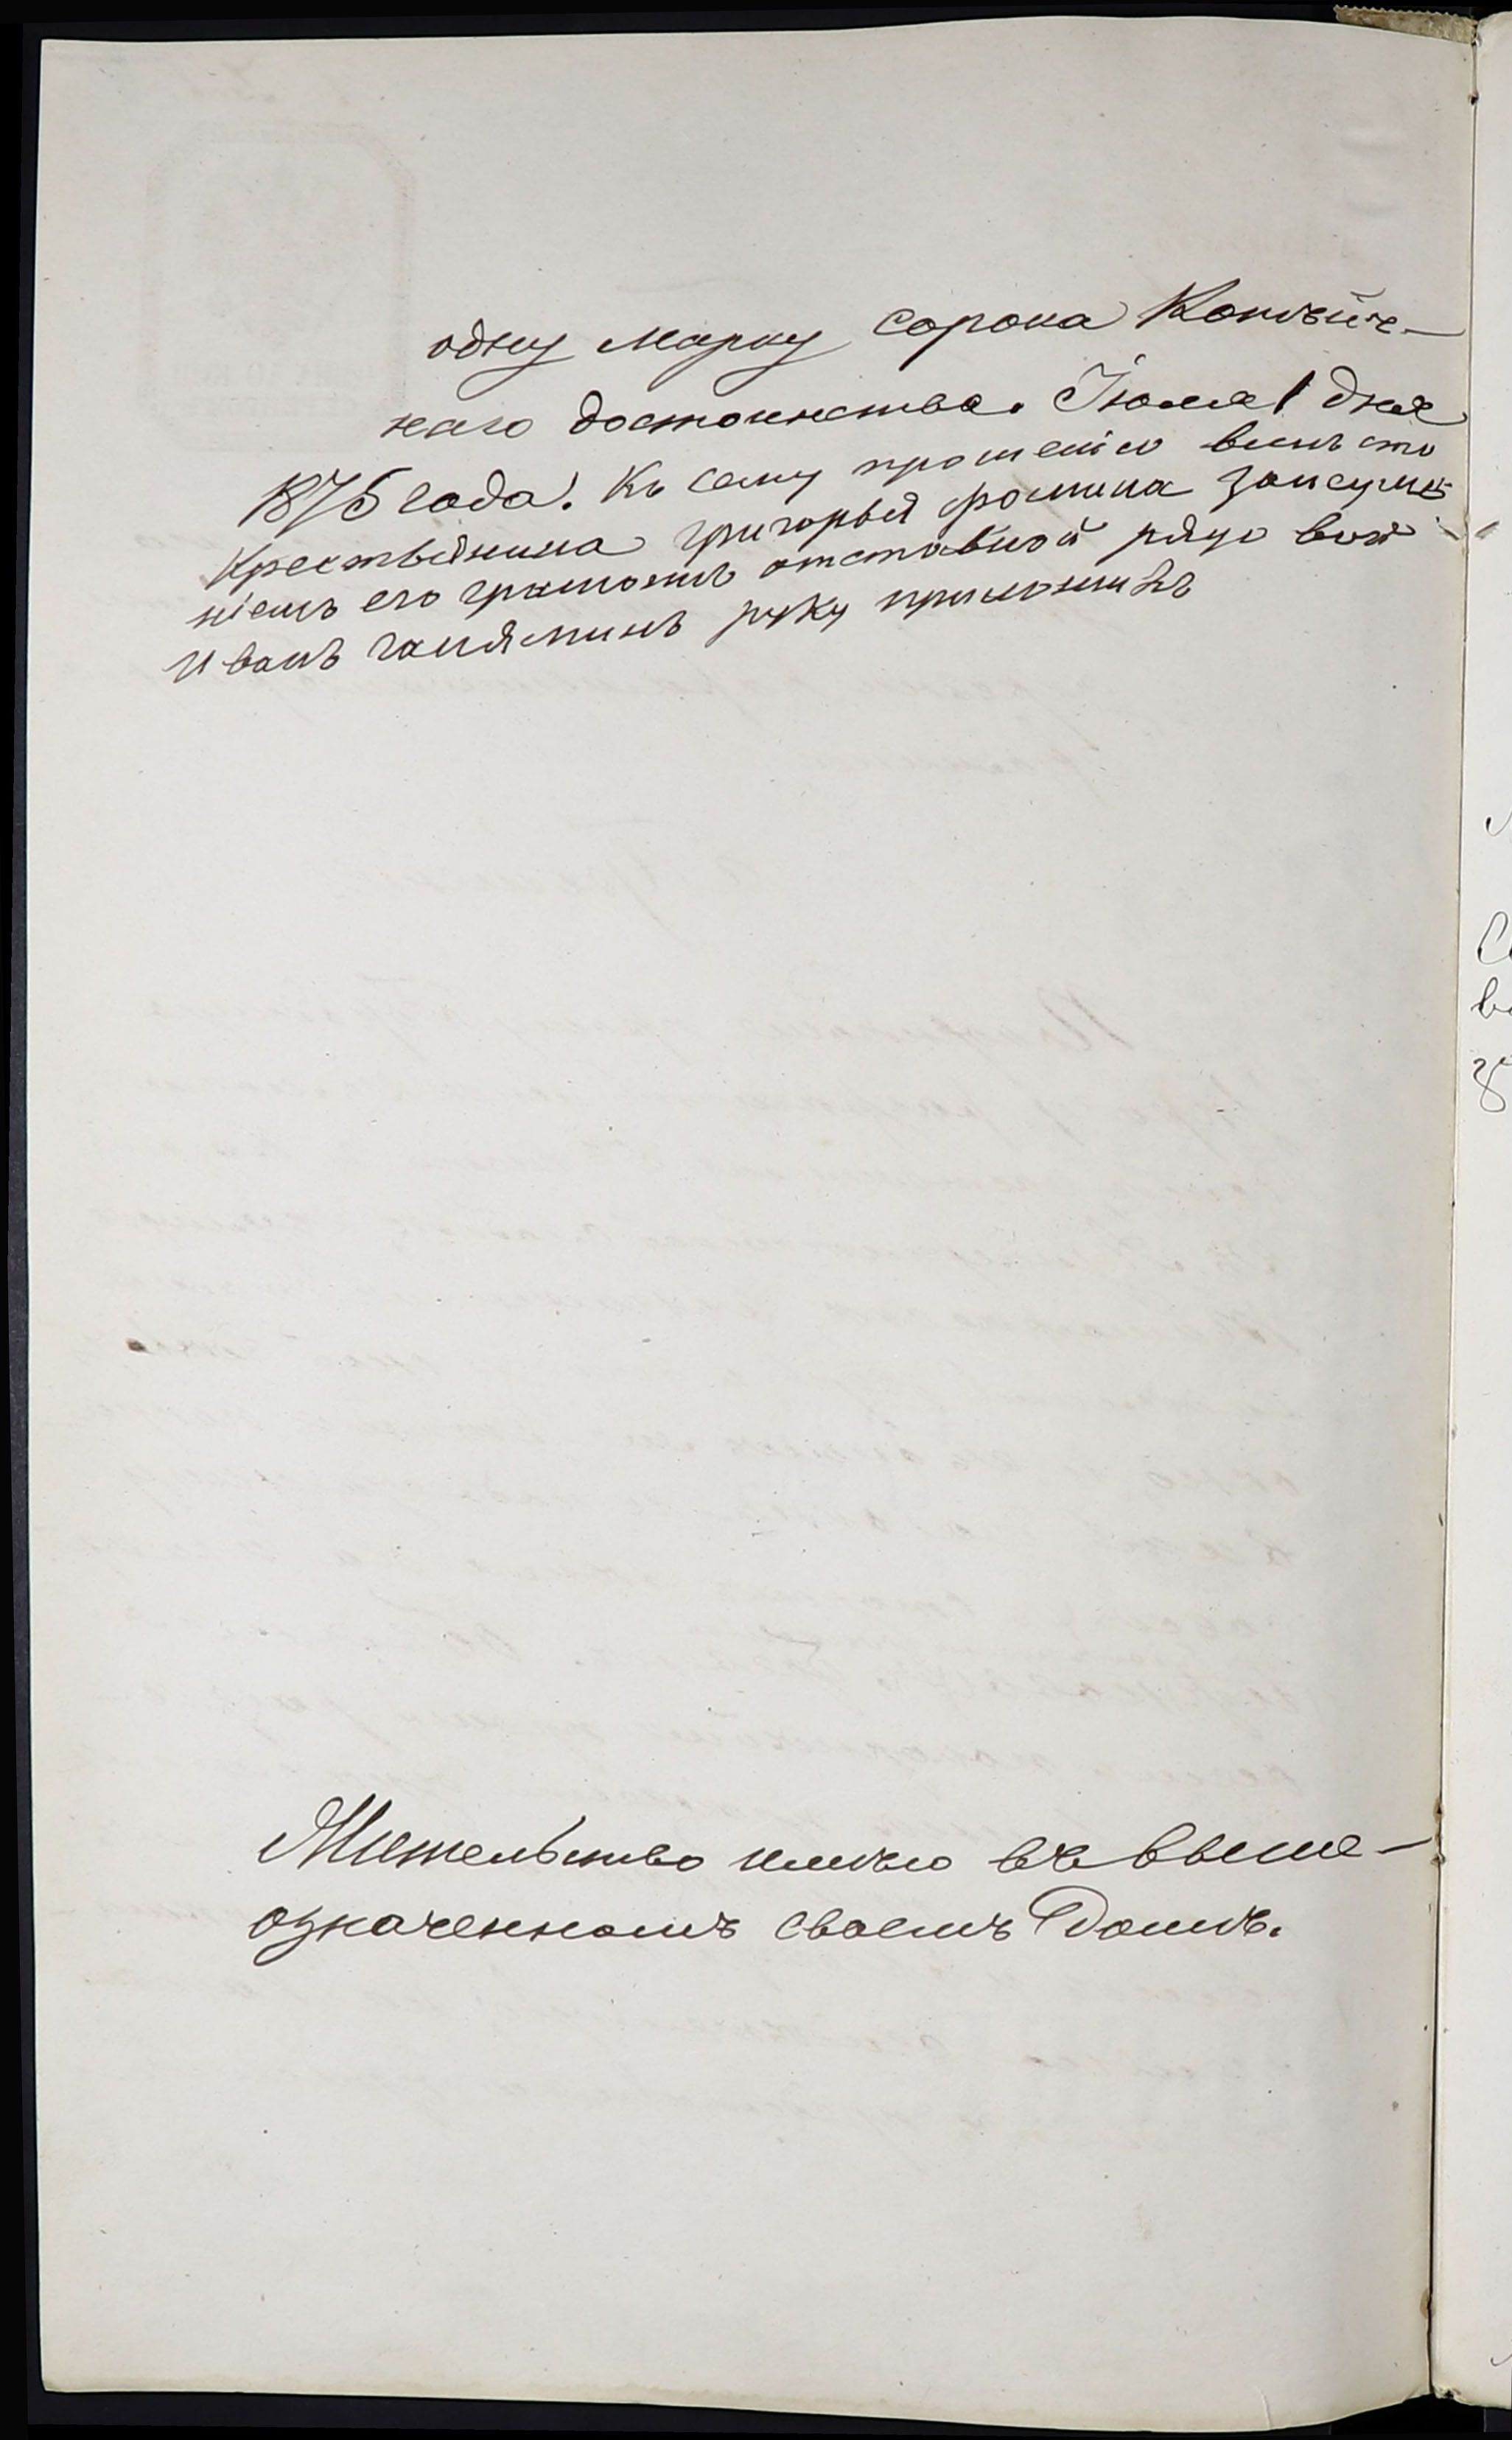 одну марку сорока Копѣеч-
наго достоинства. Іюля 1 дня
1875 года. Къ сему прошенію вмѣсто
Крестьянина григорья фомина
ніемъ его грамотъ отставной рядовой
Иванъ руку приложилъ
Жительство имѣю въ выше-
означенномъ своемъ Домѣ.